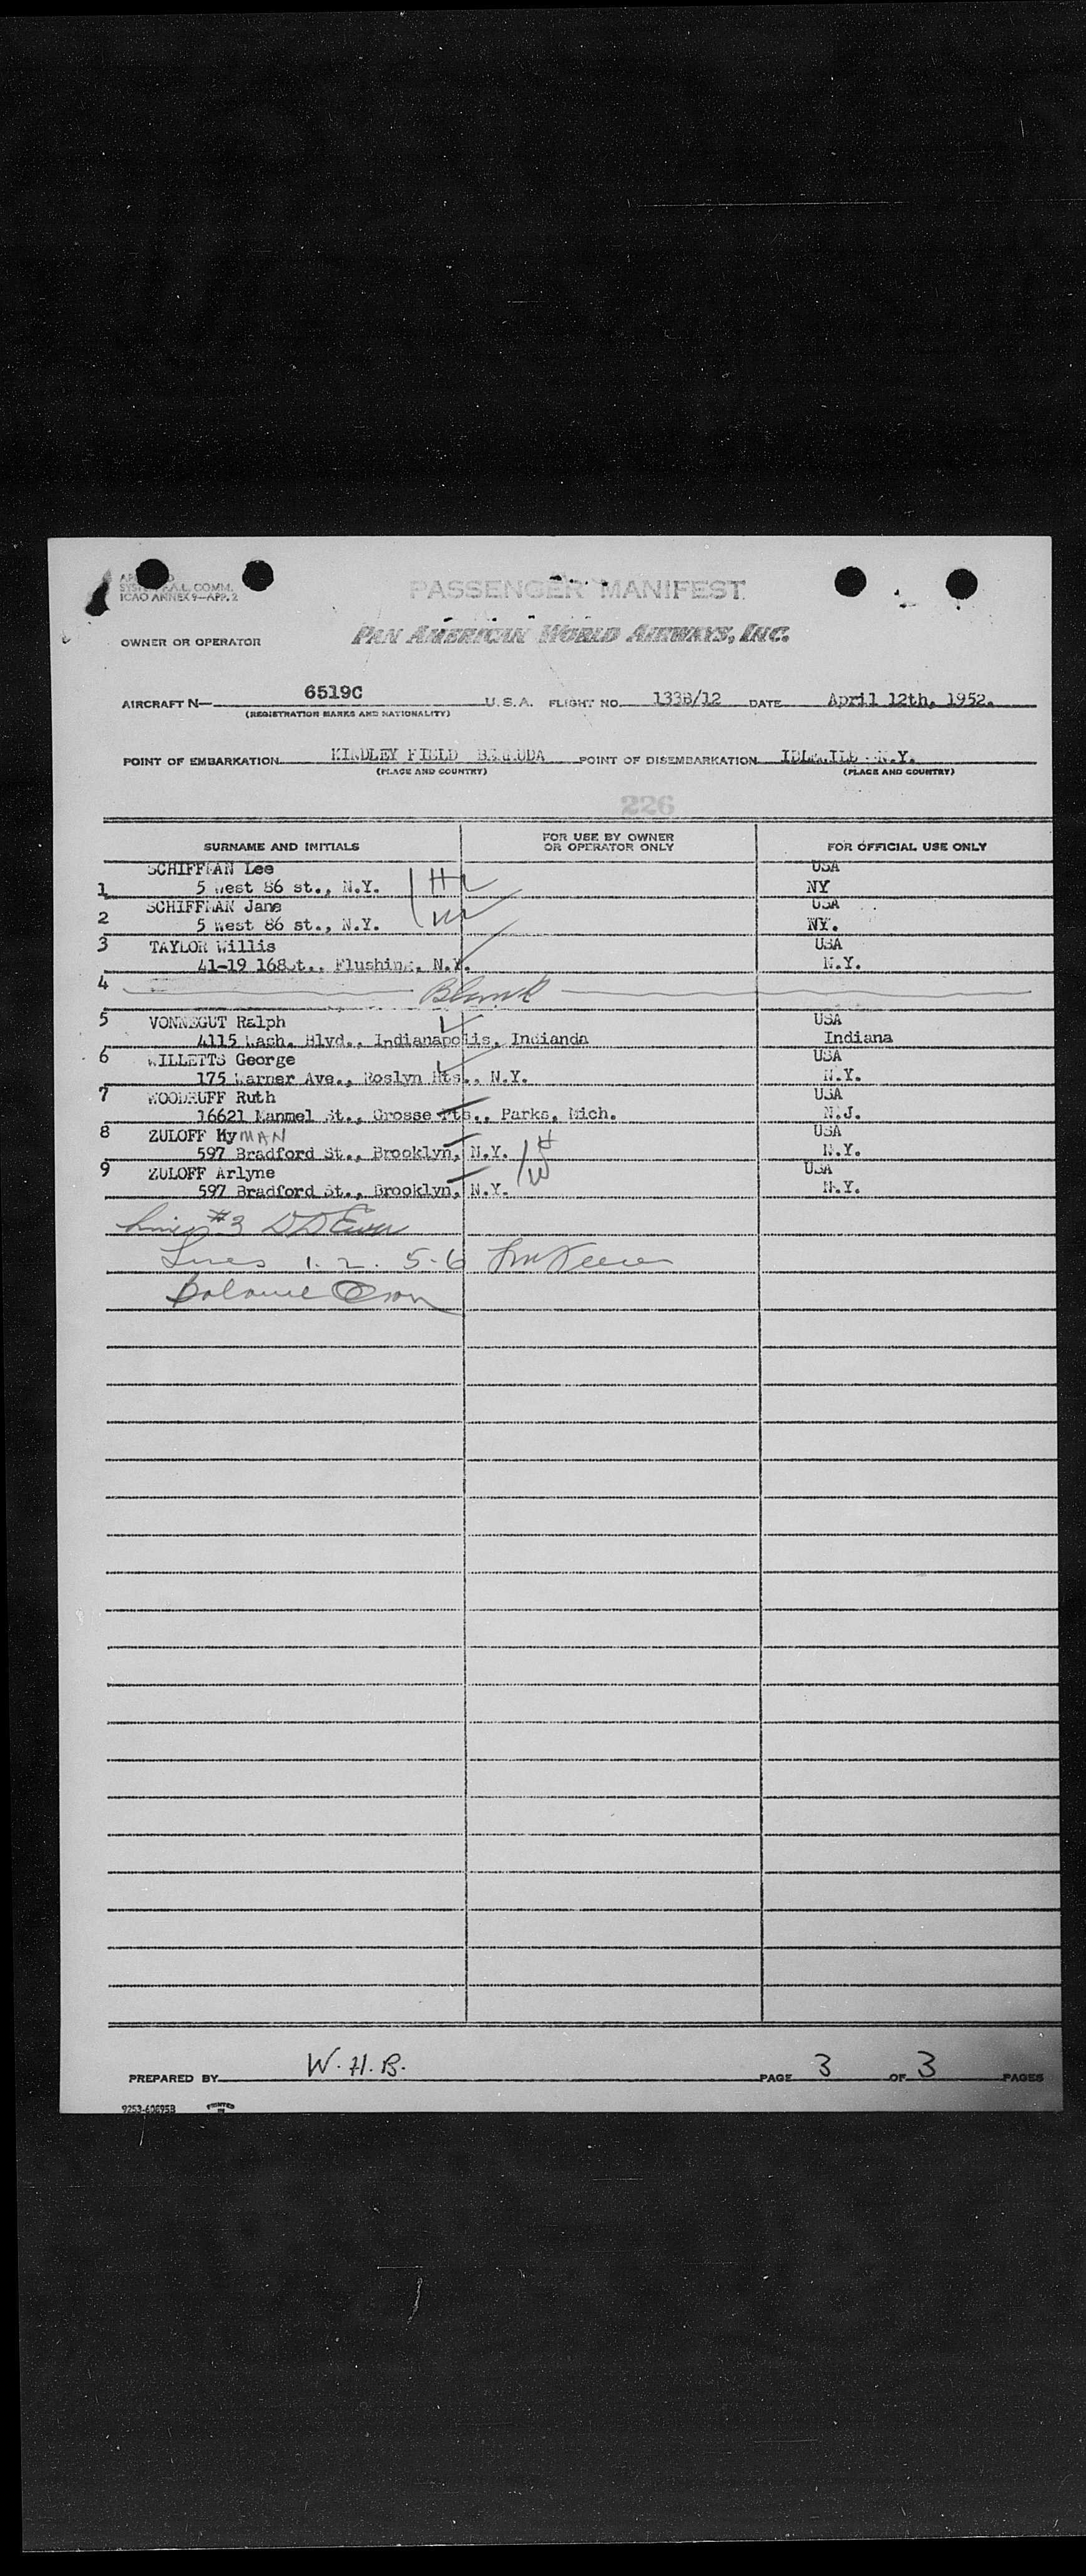 COMM.
ICAO ANNEX 9—APP. 2
PASSENGER MANIFEST
OWNER OR OPERATOR PAN AMERICAN WORLD AIRWAYS, INC.
AIRCRAFT N— 6519C U.S.A. FLIGHT NO. 133B/12 DATE April 12th, 1952.
(REGISTRATION MARKS AND NATIONALITY)
POINT OF EMBARKATION KINDLEY FIELD BERMUDA POINT OF DISEMBARKATION IDLEWILD N.Y.
(PLACE AND COUNTRY) (PLACE AND COUNTRY)
226
SURNAME AND INITIALS FOR USE BY OWNER OR OPERATOR ONLY FOR OFFICIAL USE ONLY
SCHIFFMAN Lee USA
1 5 West 86 st., N.Y. H NY
SCHIFFMAN Jane USA
2 5 West 86 st., N.Y. W NY.
3 TAYLOR Willis USA
41-19 168st., Flushing, N.Y. N.Y.
4 Blank
5 VONNEGUT Ralph USA
4115 Wash. Blvd., Indianapolis, Indianda Indiana
6 WILLETTS George USA
175 Warner Ave., Roslyn Hts., N.Y. N.Y.
7 WOODRUFF Ruth USA
16621 Manmel St., Grosse Pts., Parks, Mich. N.J.
8 ZULOFF HyMAN USA
597 Bradford St., Brooklyn, N.Y. H N.Y.
9 ZULOFF Arlyne USA
597 Bradford St., Brooklyn, N.Y. W N.Y.
#3
Lines 1. 2. 5-6
PREPARED BY W.H.B. PAGE 3 OF 3 PAGES
9253-60895B PRINTED IN